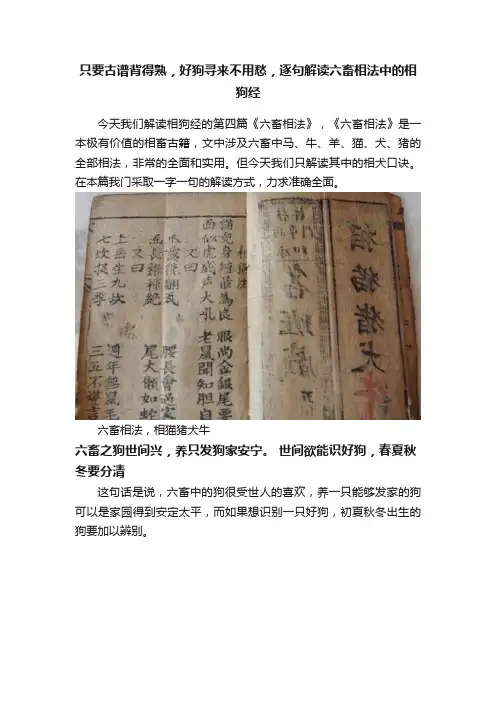 只要古谱背得熟，好狗寻来不用愁，逐句解读六畜相法中的相
狗经
今天我们解读相狗经的第四篇《六畜相法》，《六畜相法》是一
本极有价值的相畜古籍，文中涉及六畜中马、牛、羊、猫、犬、猪的
全部相法，非常的全面和实用。但今天我们只解读其中的相犬口诀。
在本篇我门采取一字一句的解读方式，力求准确全面。
相猫猪犬牛
猫兒身短最為良 眼尚金銀尾要
面似虎威声大吼 老鼠聞知胆自
又曰
爪露能翻瓦 腰長會過家
面長雞種絕 尾大懶如蛇
又曰
上齿生九坎 週年無鼠毛
七坎捉三季 三五不堪言
六畜相法，相猫猪犬牛
六畜之狗世间兴，养只发狗家安宁。 世间欲能识好狗，春夏秋
冬要分清
这句话是说，六畜中的狗很受世人的喜欢，养一只能够发家的狗
可以是家园得到安定太平，而如果想识别一只好狗，初夏秋冬出生的
狗要加以辨别。